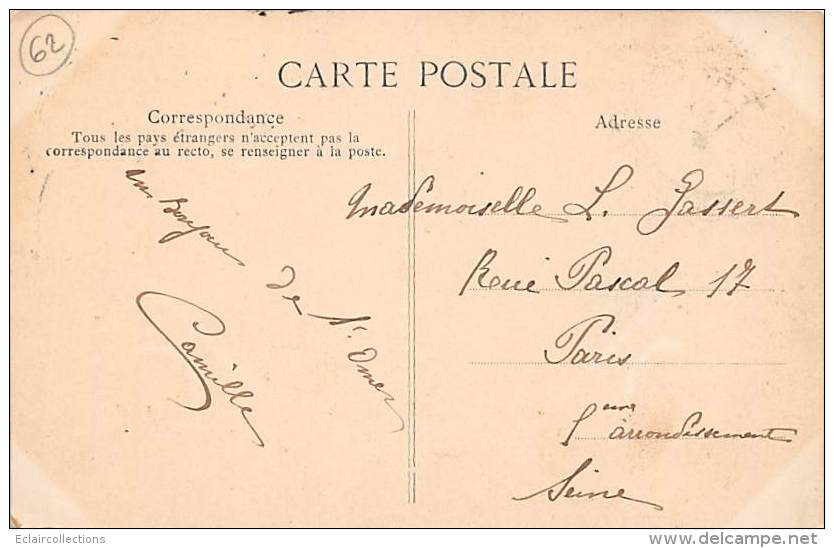 62
CARTE POSTALE
Correspondance
Tous les pays étrangers n'acceptent pas la
correspondance au recto, se renseigner à la poste.
un Bonjour
de St. Omer
Camille
Adresse
Mademoiselle L. Gassert
Rue Pascal 17
Paris
5ème arrondissement
Seine
Eclaircollections
www.delcampe.net